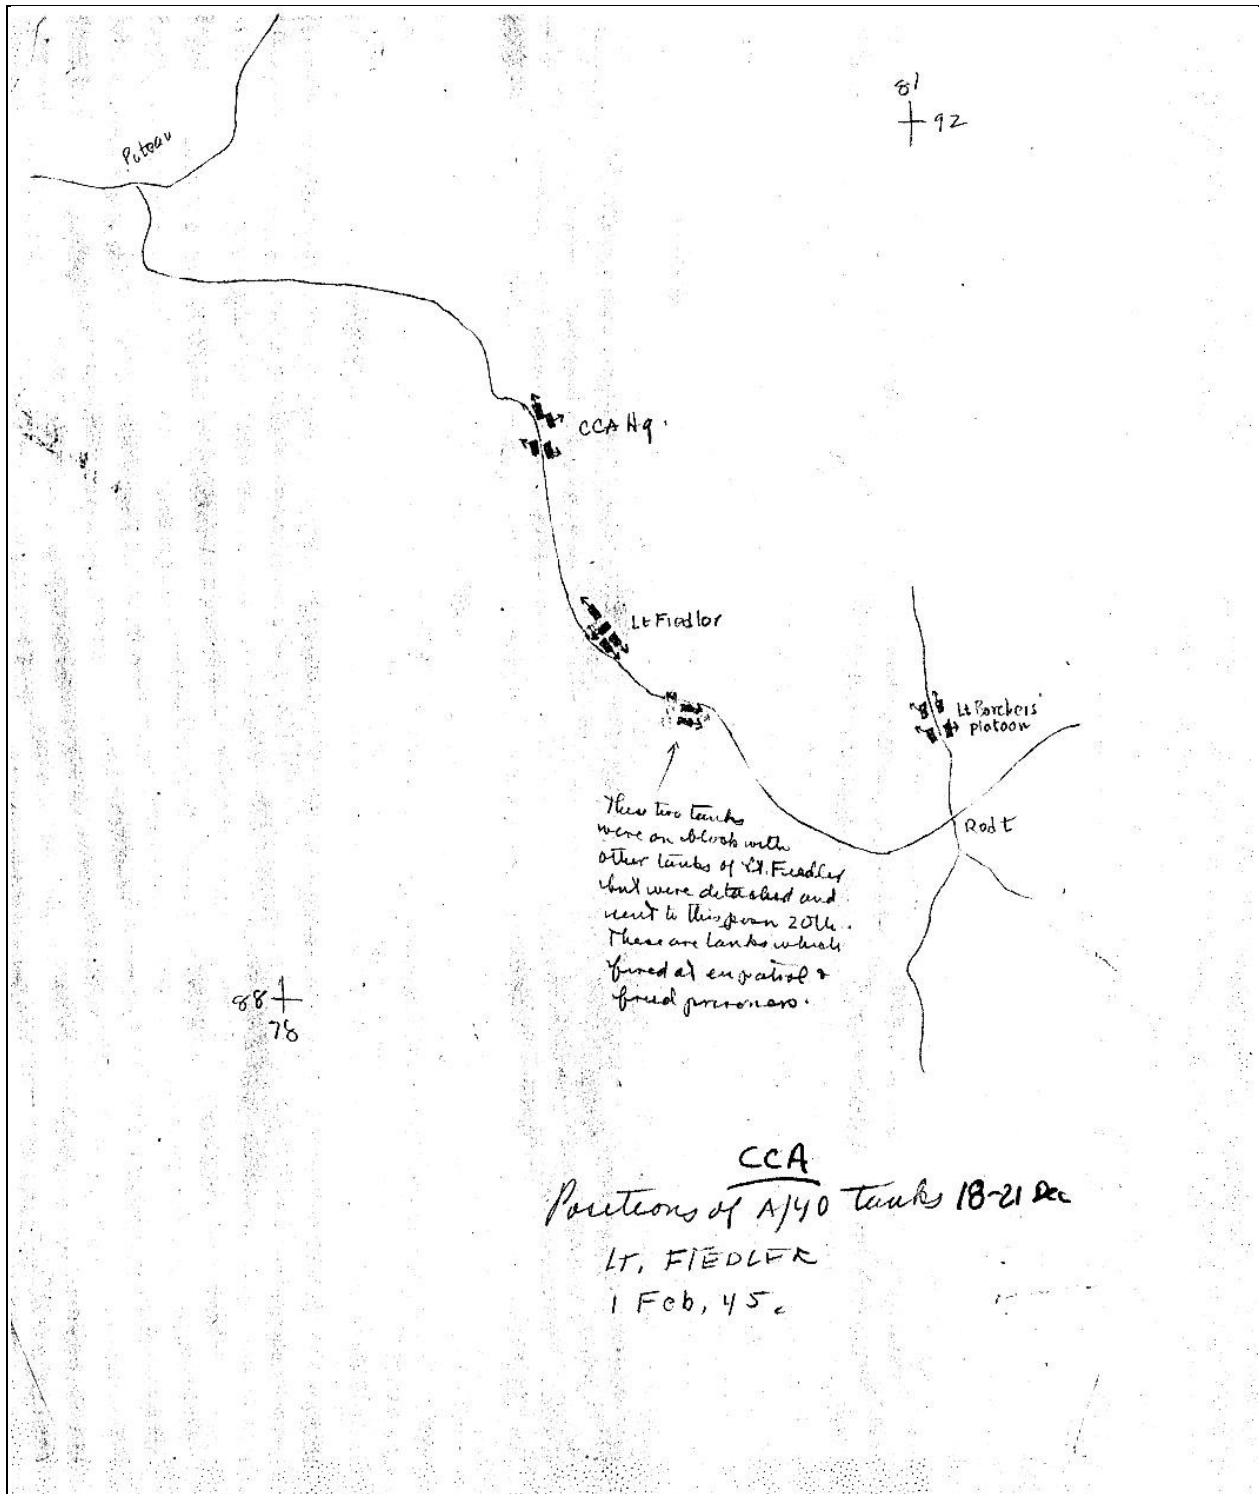 81
92
Poteau
CCA Hq.
Lt Fiedler
Lt Borchers'
platoon
Rodt
These two tanks
were on block with
other tanks of Lt. Fiedler
but were detached and
sent to this posn 20th.
These are tanks which
fired at en patrol &
freed prisoners.
88
78
CCA
Positions of A/40 tanks 18-21 Dec
LT. FIEDLER
1 Feb, 45.